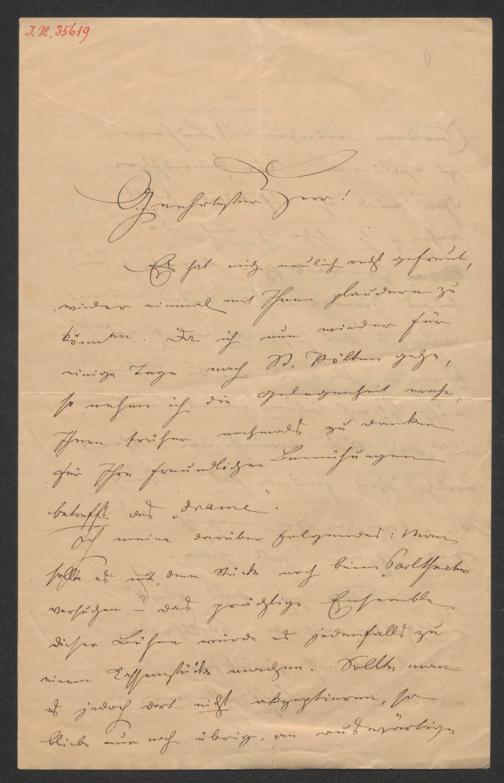 I.N. 35619
Geehrtester Herr!
Es hat mich neulich recht gefreut,
wieder einmal mit Ihnen plaudern zu
können. Da ich nun wieder für
einige Tage nach St. Pölten gehe,
so nehme ich die Gelegenheit wahr,
Ihnen früher nochmals zu danken
für Ihre freundlichen Bemühungen
betreffs des „Drama".
Ich meine darüber folgendes: Man
sollte es mit dem Stücke noch beim Carltheater
versuchen – das prächtige Ensemble
dieser Bühne würde es jedenfalls zu
einem Kassenstücke machen. Sollte man
es jedoch dort nicht akzeptieren, so
bliebe nur noch übrig, an auswärtige